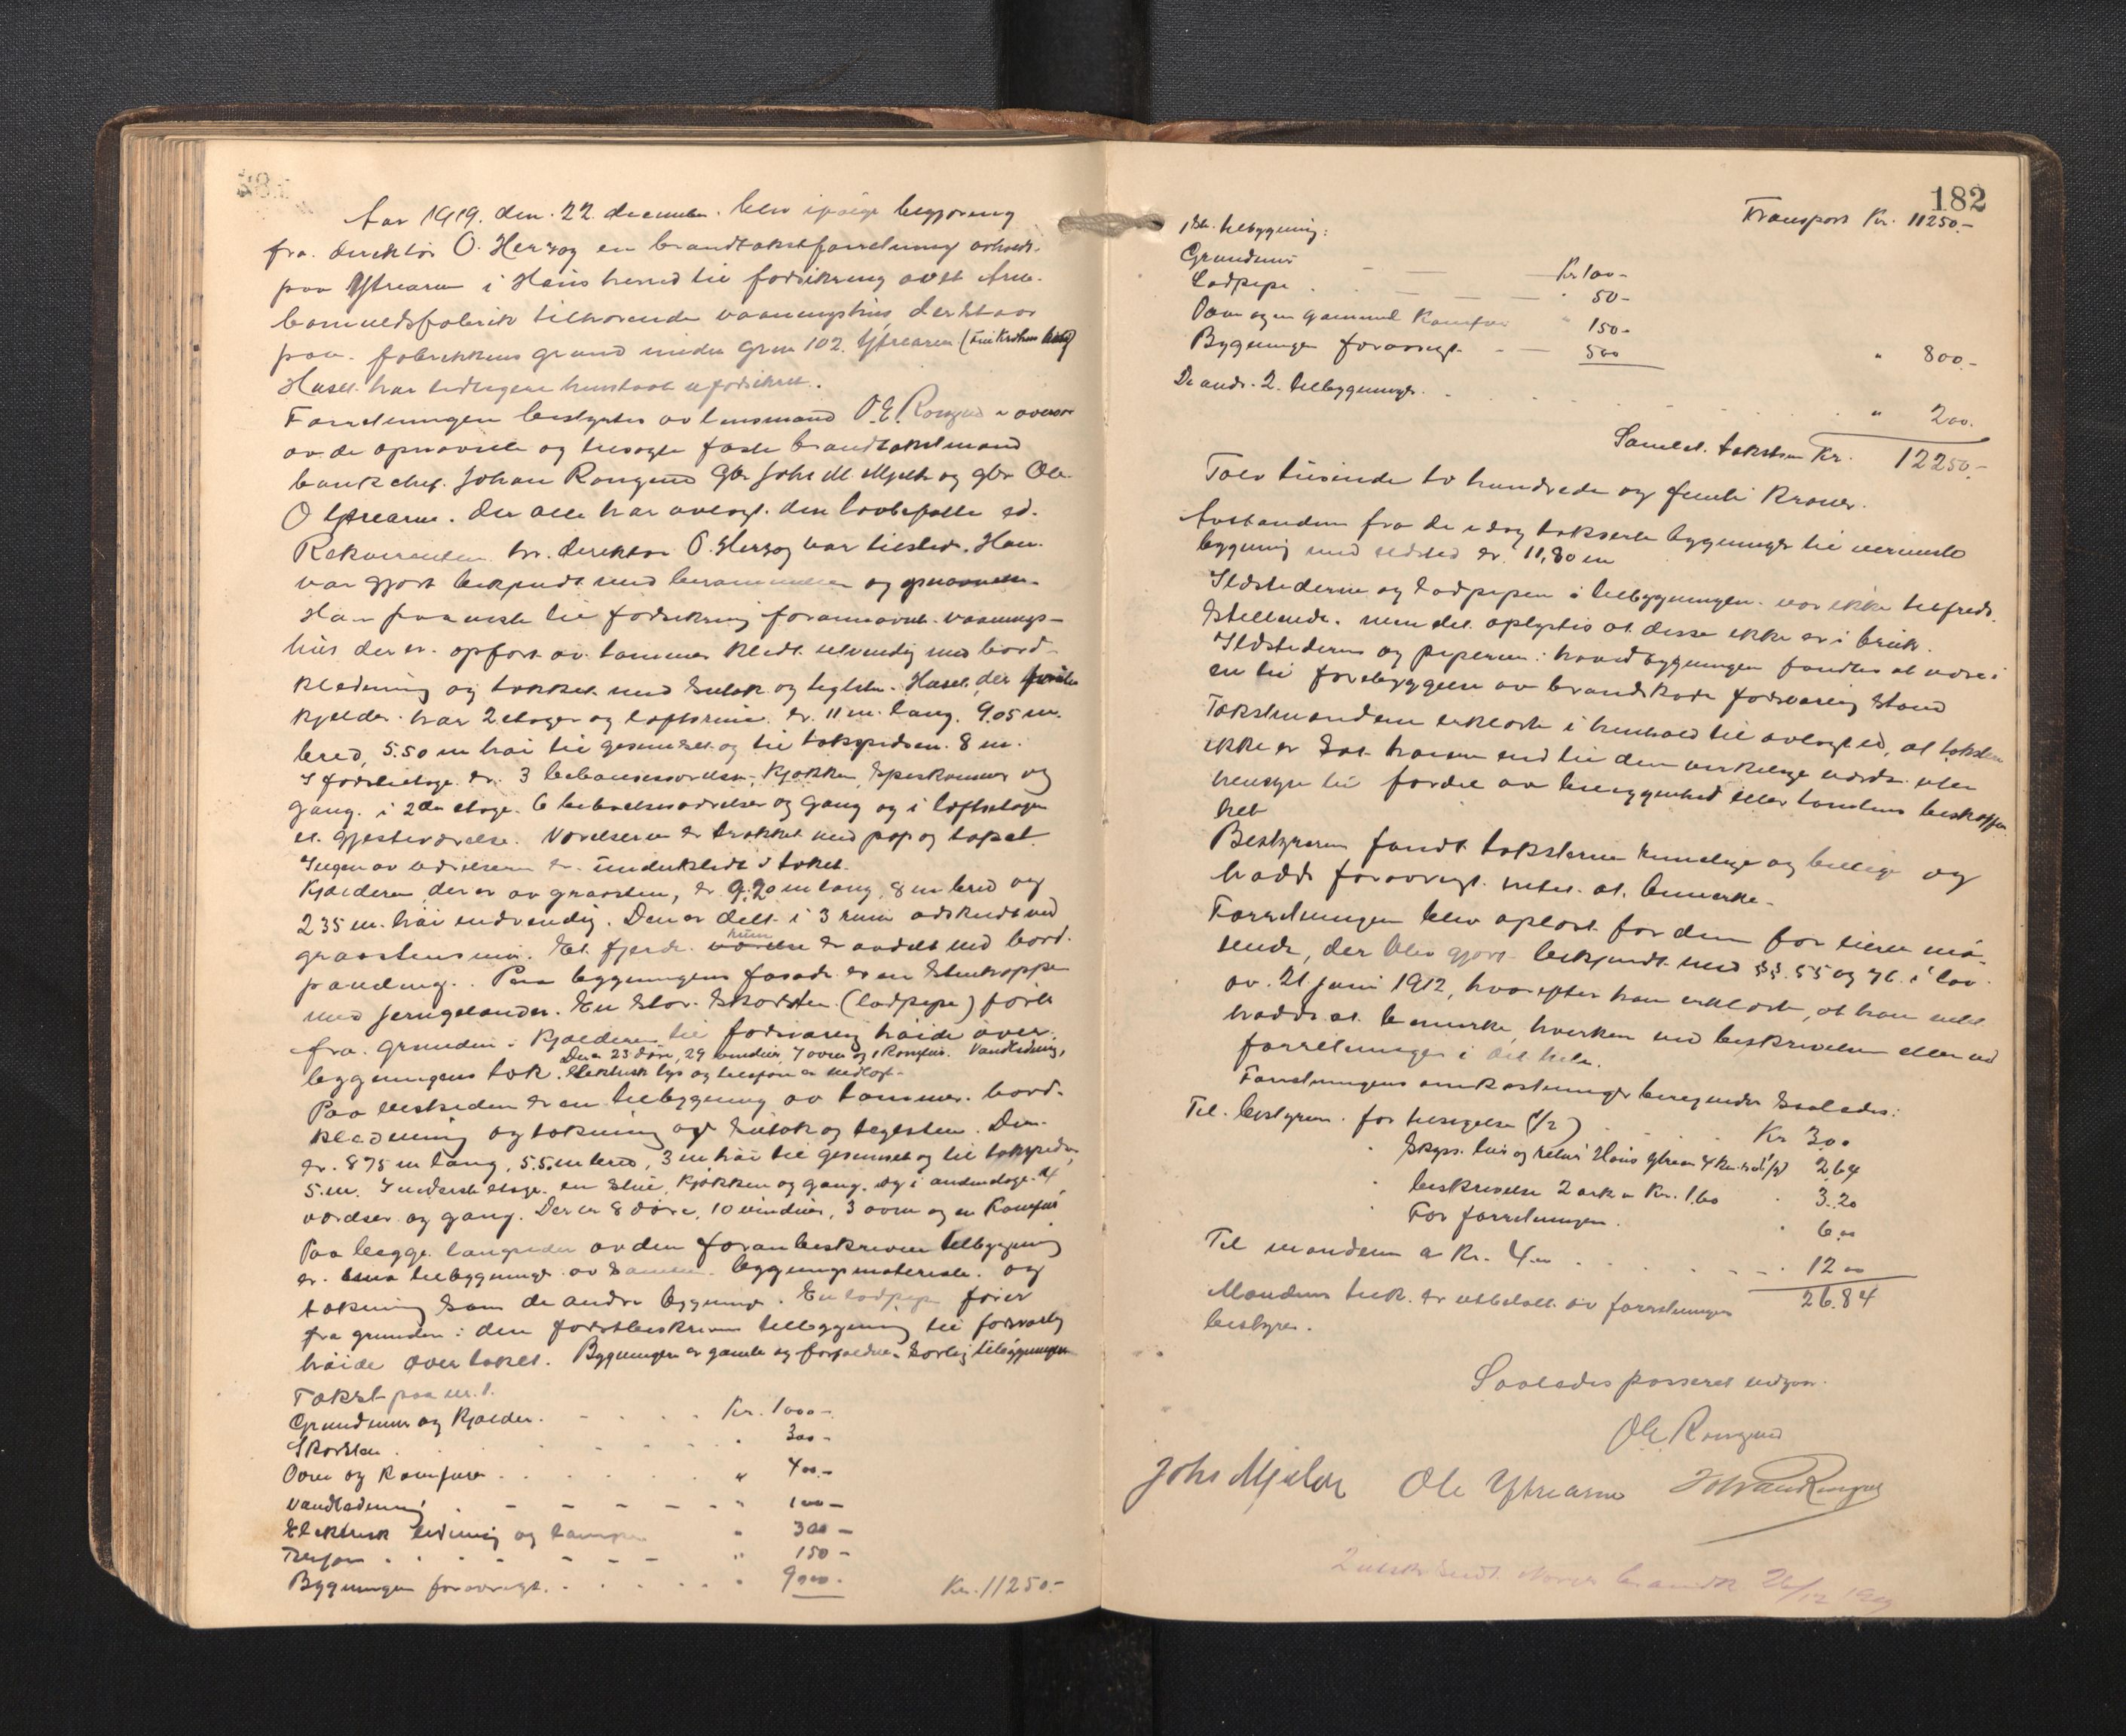 Aar 1919. den. 22. december. blev ifølge begjæring
fra. direktør O. Herzog en brandtakstforretning avholdt
paa Ytrearne i Haus herred til forsikring av et Arne-
fabrik tilhørende vaaningshus, der staar
paa. fabrikkens grund under Gnr 102. Ytrearne
Huset. har tidligere henstaat uforsikret.
Forretningen bestyrtes av lensmand O. E. Romgud
av de opnævnte og tilsagte faste brandtakstmænd
Johan Romgud Gbr Johs M. Mjelde og gbr Ole
O Ytrearne. der alle har avlagt. den lovbefalte ed.
Rekvirenten hr. direktør O. Herzog var tilstede. Han
var gjort bekjendt med berammelsen og
Han paaviste til forsikring forannævnte vaanings-
hus der er. opført av tømmer klædt utvendig med bord-
klædning og tækket med sutak og teglsten. Huset, der
kjælder. har 2 etager og loftsrum. er. 11 m. lang. 9.05 m.
bred, 5.50 m høi til gesimset og til takspidsen. 8 m.
I første etage. er. 3 beboelsesværelser, Kjøkken, Spiskammer og
gang. i 2den etage. 6 beboelsesværelser og gang og i loftsetagen
et. gjesteværelse. Værelserne er trukket med pap og tapet.
Ingen av værelserne er. underklædt i taket.
Kjælderen, der er av graasten, er 9.20 m lang, 8 m bred og
235 m. høi indvendig. Den er delt i 3 rum adskildt ved
graastensmur. Et. fjerde. værelse rum er avdelt med bord-
panding. Paa bygningens fasade er en Stentrappe
med jerngelænder. En stor. Skorsten (lodpipe) fører
fra. grunden i kjælderen til forsvarlig høide over.
Der er 23 døre, 29 vinduer, 7 ovne og 1 Komfur. Vandledning,
bygningens tak. Elektrisk lys og telefon er indlagt.
Paa vestsiden er en tilbygning av tømmer. bord-
klædning og tækning av sutak og teglsten. Den
er. 875 m lang, 5.5. m bred, 3 m høi til gesimset og til takspidsen
5. m. I underste etage. en stue, Kjøkken og gang. og i anden etage. 4
værelser og gang. Der er 8 døre, 10 vinduer, 3 ovne og en Komfur
Paa begge. langsider av den foran beskrevne tilbygning
er. smaa tilbygninger av samme. bygningsmateriale. og
tækning som de andre bygninger. En lodpipe fører
fra grunden i den førstbeskrevne tilbygning til forsvarlig
høide over taket. Bygningen er gamle og forfaldne. særlig tilbygningen
Takst paa nr. 1.
Grundmur og Kjælder. Kr. 1000-
Skorsten . " 300-
Ovne og Komfurer . " 400.-
Vandledning . " 100-
Elektrisk ledning og lamper " 300-
Telefon . " 150-
Bygningen forøvrigt. . " 9000. Kr. 11250.-
182
Transport Kr. 11250.-
1ste. tilbygning:
Grundmur Kr. 100-
Lodpipe . " 50-
Ovne og en gammel Komfur " 150-
Bygningen forøvrigt. 500 " 800.-
De andre. 2. tilbygninger. " 200.
Samlet. takstsum Kr. 12250.-
Tolv tusinde to hundrede og femti Kroner.
Avstanden fra de idag takserte bygninger til nærmeste
bygning med ildsted er. 11,80 m
Ildstederne og lodpipen i tilbygningen. var ikke tilfreds-
stillende. men det. oplystes at disse ikke er i bruk.
Ildstederne og piperne i hovedbygningen fandtes at være i
en til forebyggelse av brandskade forsvarlig stand
Takstmændene erklærte i henhold til avlagt ed, at taksten
ikke er sat høiere end til den virkelige værdi uten
hensyn til fordel av beliggenhed eller tomtens beskaffen-
het
Bestyreren fandt taksterne rimelige og billige og
hadde forøvrigt. intet. at. bemerke.
Forretningen blev oplæst for dem for
sende, der blev gjort bekjendt med §§. 55 og 76. i lov
av. 21. juni 1912, hvorefter han erklærte, at han intet
hadde at. bemerke, hverken ved beskrivelsen eller ved
forretningen i det hele.
Forretningens omkostninger beregnedes saaledes:
Til. bestyreren. for tilsigelse (1/2) Kr 3.00
" Skyss. hus og retur Haus Ytrearne 2.64
" beskrivelse 2 ark a Kr. 1.60 " 3.20
" For forretningen. " 6.00
Til mændene a Kr. 4.00 12.00
26.84
Mændenes tilk. er utbetalt av forretningens
bestyrer.
Saaledes passeret utgaar.
O. E. Romgud
Johs Mjelde Ole Ytrearne Johan Romgud
2 utskr. sendt. Norges brandk 26/12 1919